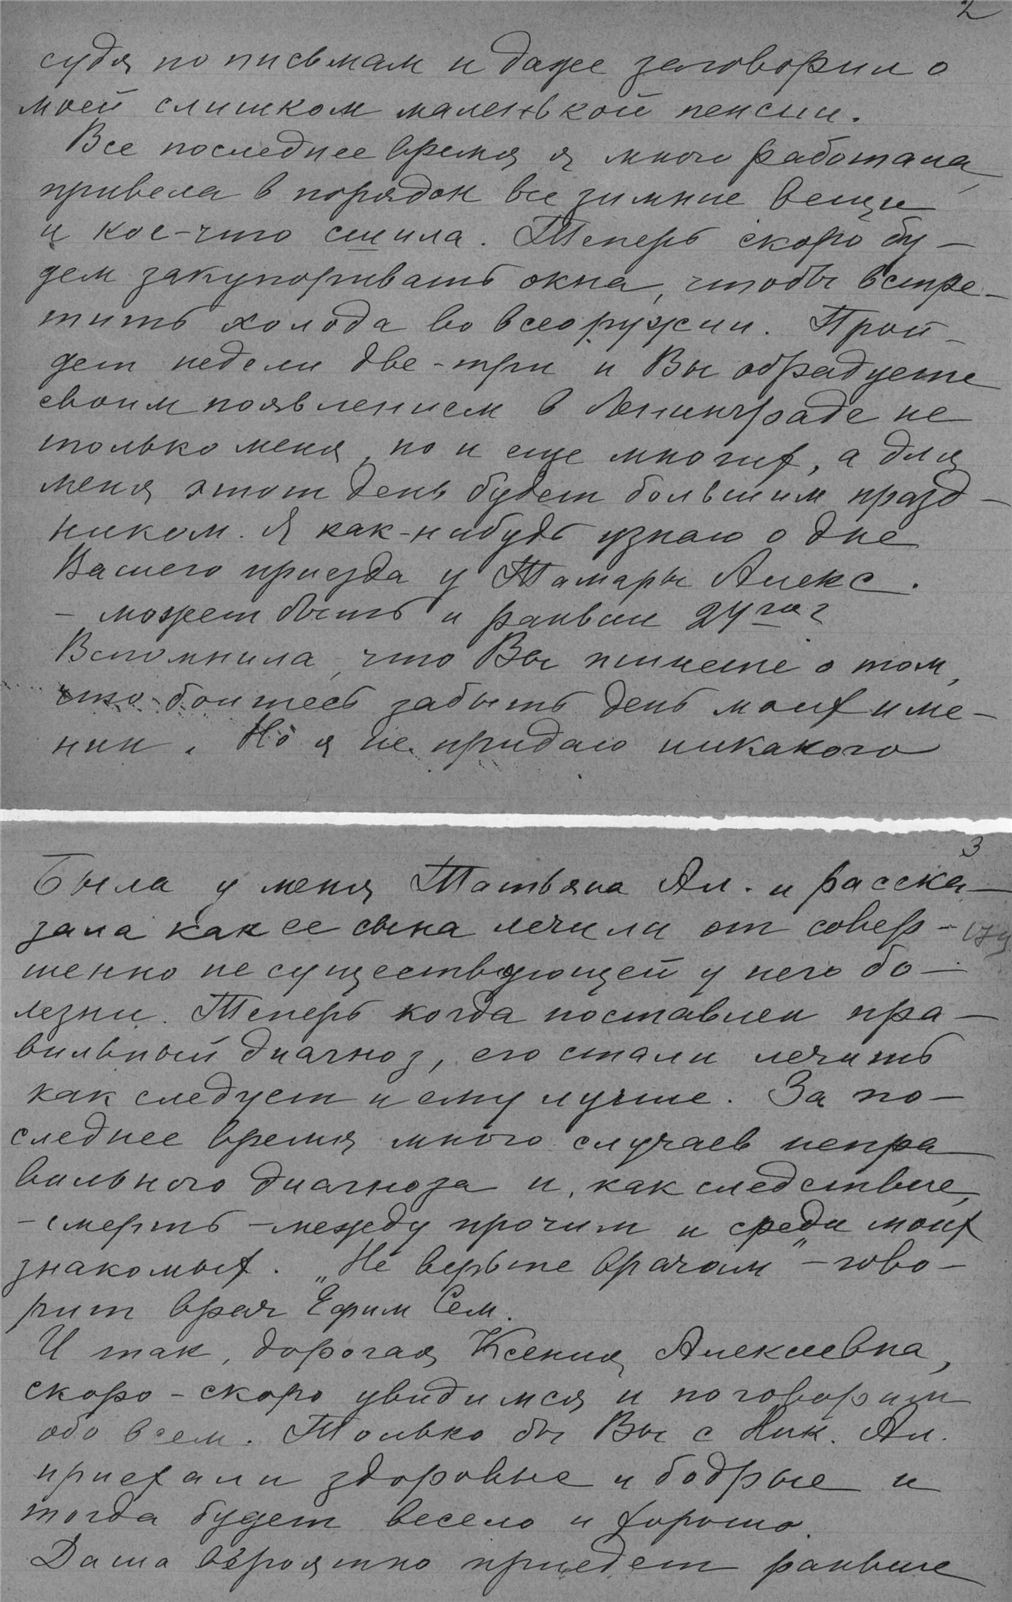 2
судя по письмам и даже заговорил о
моей слишком маленькой пенсии.
Все последнее время я много работала,
привела в порядок все зимние вещи
и кое-что сшила. Теперь скоро бу-
дем закупоривать окна, чтобы встре-
тить холода во всеоружии. Прой-
дет недели две-три и Вы обрадуете
своим появлением в Ленинграде не
только меня, но и еще многих, а для
меня этот день будет большим празд-
ником. Я как-нибудь узнаю о дне
Вашего приезда у Тамары Алекс.
- может быть и раньше 24го?
Вспомнила, что Вы пишете о том,
что боитесь забыть день моих име-
нин. Но я не придаю никакого
3
Была у меня Татьяна Ал. и расска-
зала как ее сына лечили от совер-
шенно не существующей у него бо-
лезни. Теперь когда поставлен пра-
вильный диагноз, его стали лечить
как следует и ему лучше. За по-
следнее время много случаев непра
вильного диагноза и, как следствие,
- смерть - между прочим и среди моих
знакомых. „Не верьте врачам" - гово-
рит врач Ефим Сем.
И так, дорогая Ксения Алексеевна,
скоро-скоро увидимся и поговорим
обо всем. Только бы Вы с Ник. Ал.
приехали здоровые и бодрые и
тогда будет весело и хорошо.
Даша вероятно приедет раньше